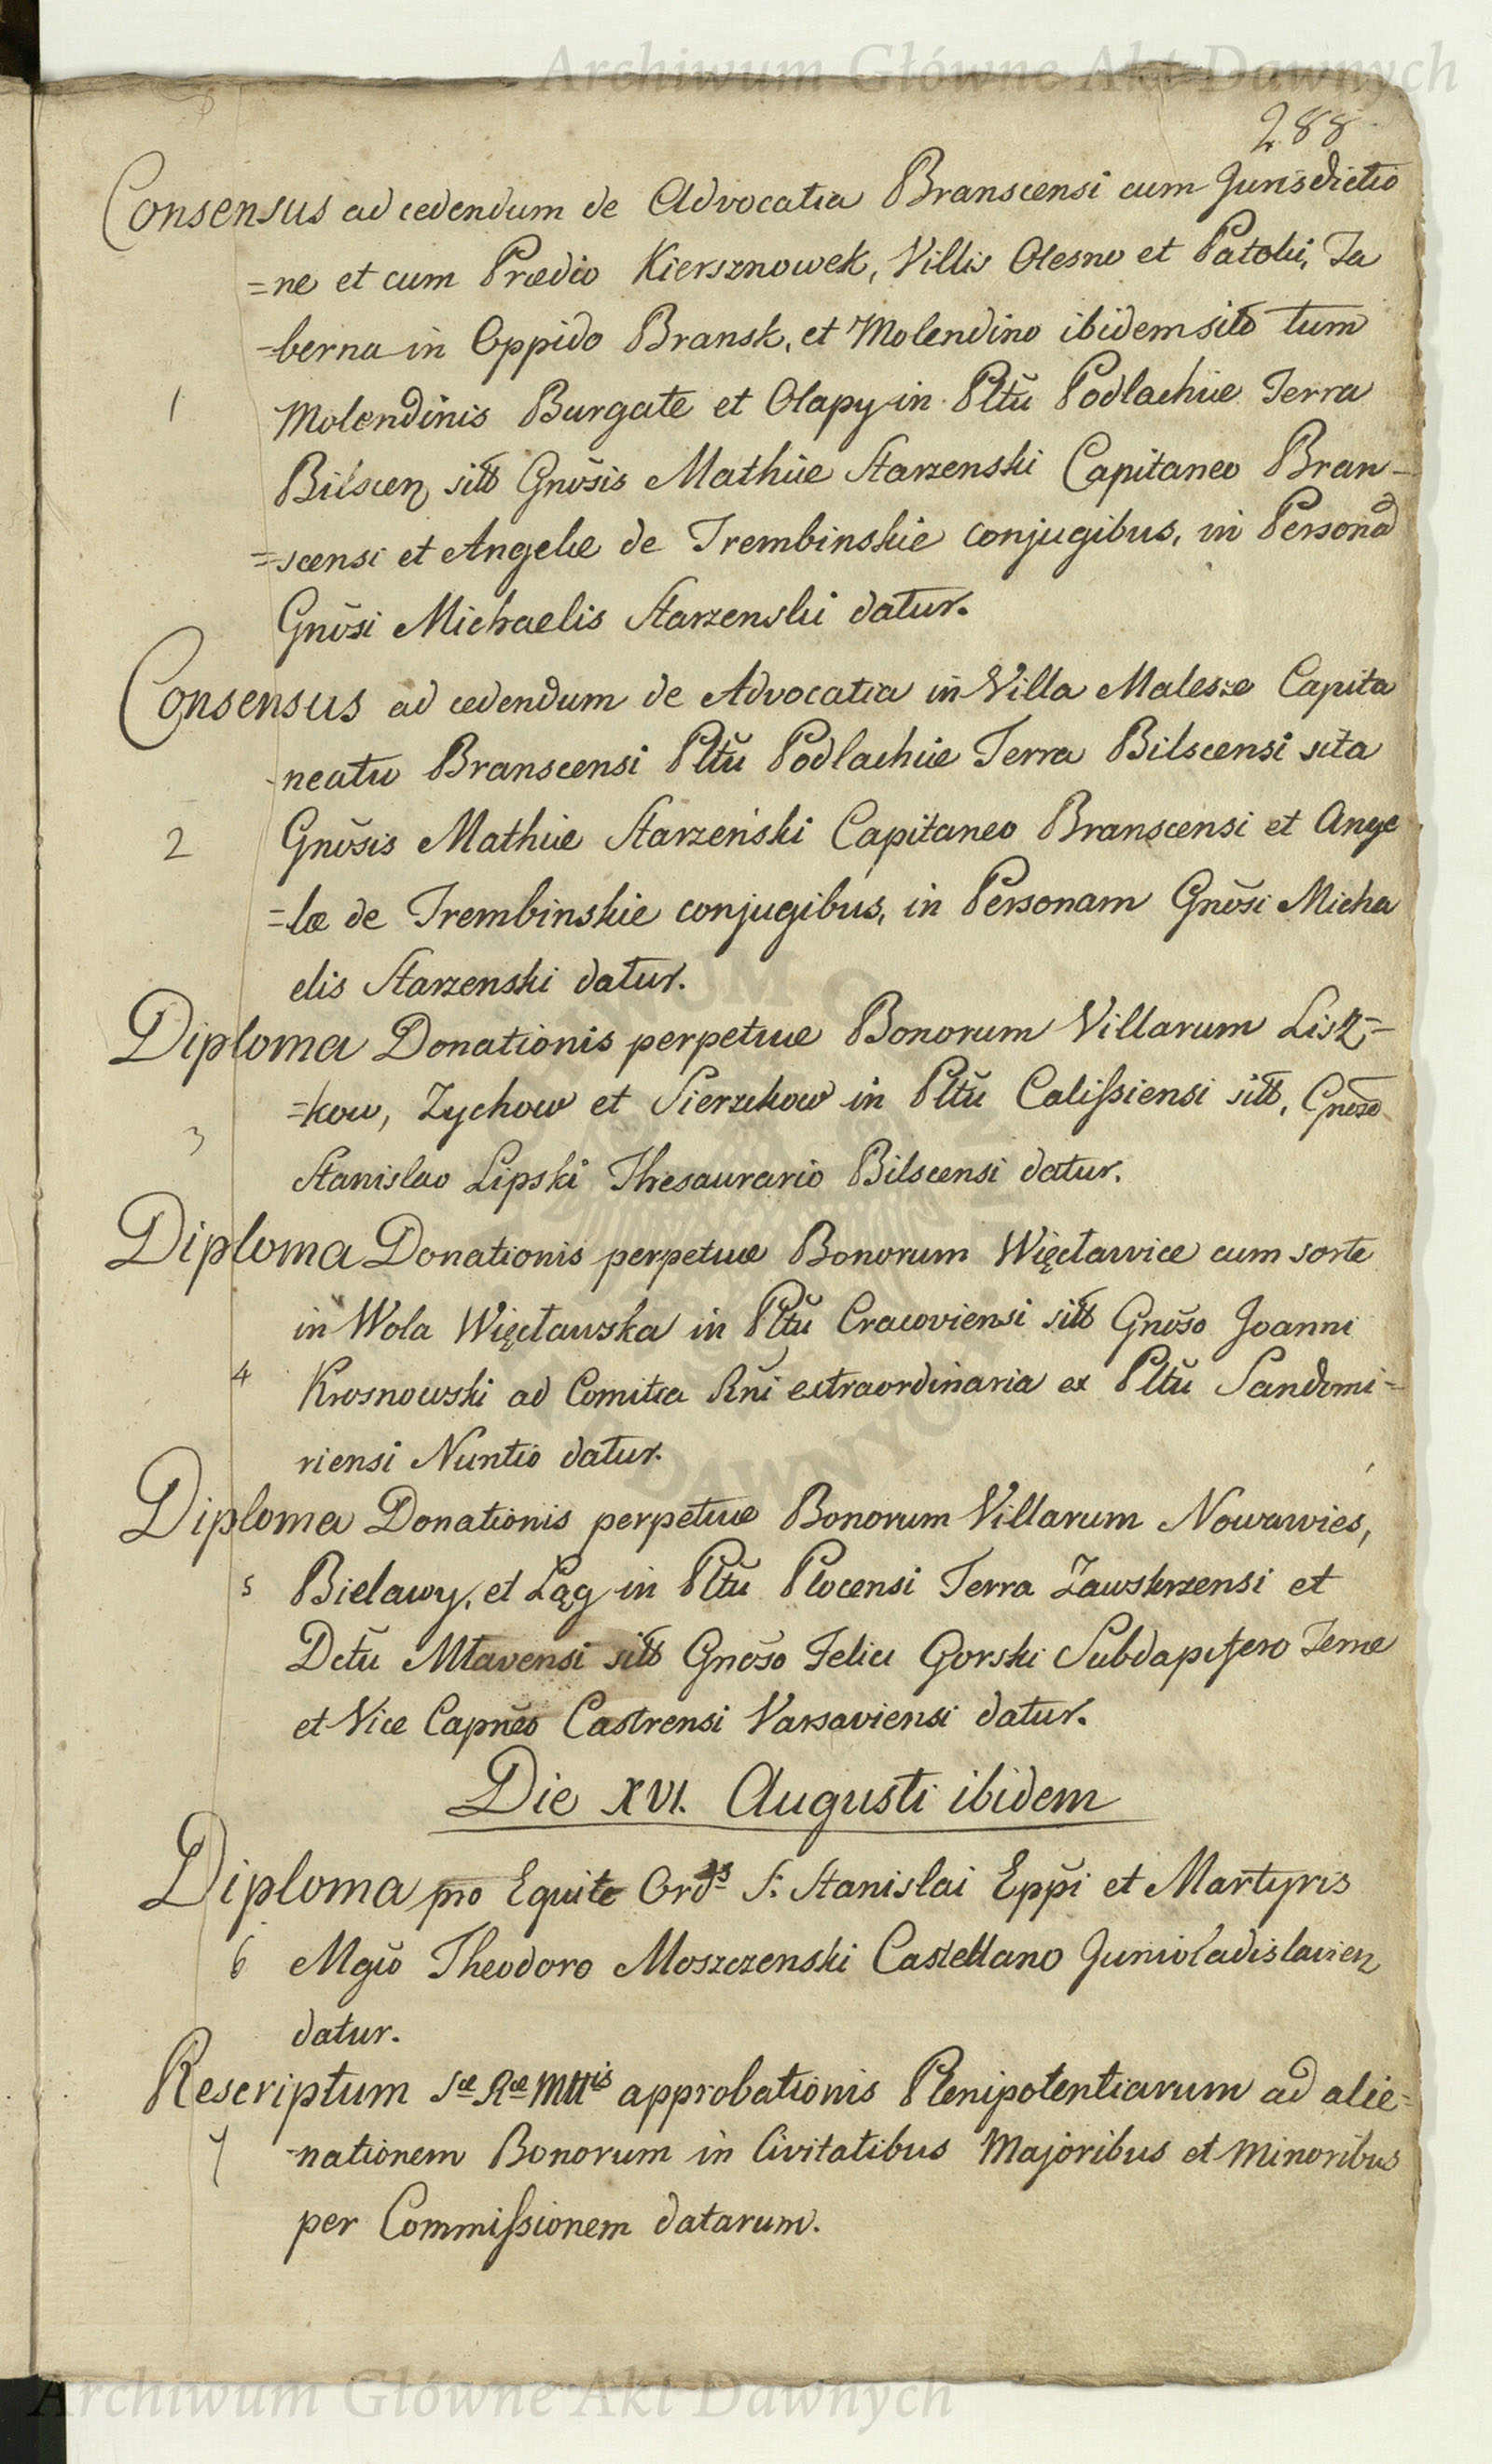 Archiwum Główne Akt Dawnych
288
Consensus ad cedendum de Advocatia Branscensi cum Jurisdictio
=ne et cum Prædio Kiersznowek, Villis Olesno et Patoki, Ta
=berna in Oppido Bransk, et Molendino ibidem sitō tum
1 Molendinis Burgate et Olapy in Pltū Podlachiæ Terra
Bilscen sittō Gnōsis Mathiæ Starzenski Capitaneo Bran=
=scensi et Angelæ de Trembinskie conjugibus, in Personā
Gnōsi Michaelis Starzenski datur.
Consensus ad cedendum de Advocatia in Villa Malesze Capita
neatu Branscensi Pltū Podlachiæ Terra Bilscensi sita
2 Gnōsis Mathiæ Starzeński Capitaneo Branscensi et Ange
=læ de Trembinskie conjugibus, in Personam Gnōsi Micha
elis Starzenski datur.
Diploma Donationis perpetuæ Bonorum Villarum Lisz=
=kow, Zychow et Pierzchow in Pltū Calissiensi sittō, Gnōso
3 Stanislao Lipski Thesaurario Bilscensi datur.
Diploma Donationis perpetuæ Bonorum Więcławice cum sorte
in Wola Więcławska in Pltū Cracoviensi sittō Gnōso Joanni
4 Krosnowski ad Comitia Rni extraordinaria ex Pltū Sandomi=
riensi Nuntio datur.
Diploma Donationis perpetuæ Bonorum Villarum Nowawies,
5 Bielawy, et Ląg in Pltū Plocensi Terra Zawskrzensi et
Dctū Mlavensi sittō Gnōso Felici Gorski Subdapifero Terræ
et Vice Capnēo Castrensi Varsaviensi datur.
Die XVI. Augusti ibidem
Diploma pro Equite Ordis S. Stanislai Eppi et Martyris
6 Mgco Theodoro Moszczenski Castellano Juniovladislavien
datur.
Rescriptum Sæ Ræ Mttis approbationis Plenipotentiarum ad alie=
7 nationem Bonorum in Civitatibus Majoribus et Minoribus
per Commissionem datarum.
Archiwum Główne Akt Dawnych